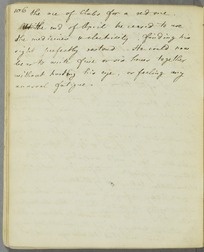 106 the ace of Clubs for a red one.
At the end of April he ceased to use
the medicines & electricity finding his
sight perfectly restored. He could now
be or to write five or six hours together
without hurting his eye, or feeling any
unusual fatigue.